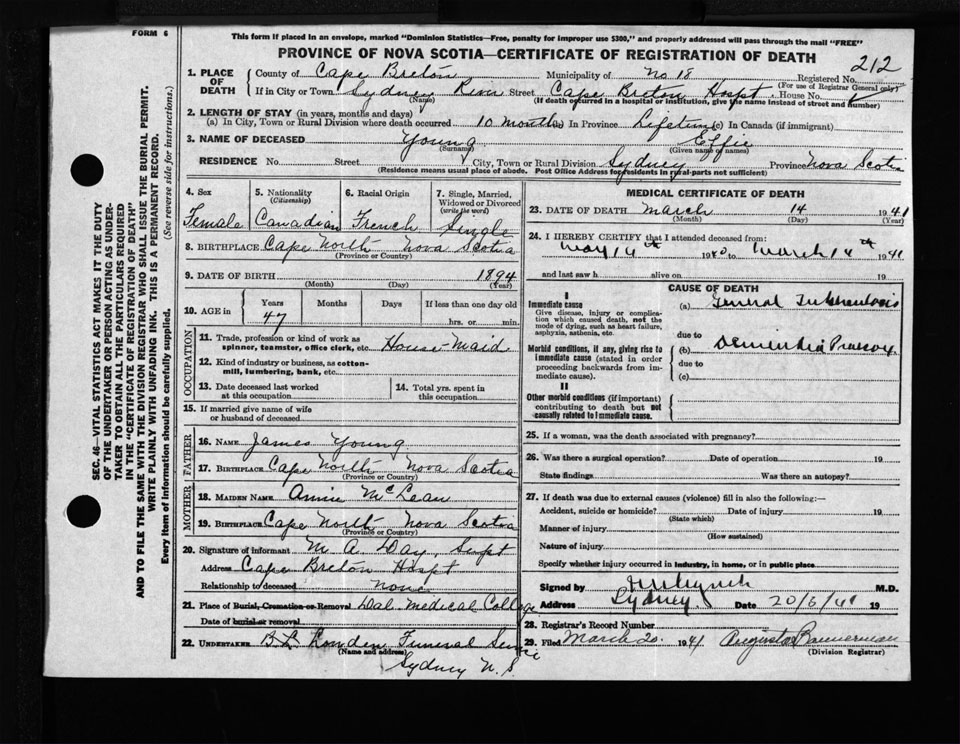 FORM 6
This form if placed in an envelope, marked "Dominion Statistics—Free, penalty for improper use $300," and properly addressed will pass through the mail "FREE"
PROVINCE OF NOVA SCOTIA—CERTIFICATE OF REGISTRATION OF DEATH
212
1. PLACE OF DEATH
County of Cape Breton Municipality of No 18 Registered No.
(For use of Registrar General only)
If in City or Town Sydney River Street Cape Breton Hospt. House No.
(Name) (If death occurred in a hospital or institution, give the name instead of street and number)
2. LENGTH OF STAY (in years, months and days)
(a) In City, Town or Rural Division where death occurred 10 months (b) In Province Lifetime (c) In Canada (if immigrant)
3. NAME OF DECEASED Young Effie
(Surname) (Given name or names)
RESIDENCE No. Street City, Town or Rural Division Sydney Province Nova Scotia
(Residence means usual place of abode. Post Office Address for residents in rural parts not sufficient)
4. Sex Female
5. Nationality (Citizenship) Canadian
6. Racial Origin French
7. Single, Married, Widowed or Divorced (write the word) Single
8. BIRTHPLACE Cape North Nova Scotia
(Province or Country)
9. DATE OF BIRTH 1894
(Month) (Day) (Year)
10. AGE in Years Months Days If less than one day old
47 hrs. or min.
OCCUPATION
11. Trade, profession or kind of work as spinner, teamster, office clerk, etc. House-maid
12. Kind of industry or business, as cotton-mill, lumbering, bank, etc.
13. Date deceased last worked at this occupation
14. Total yrs. spent in this occupation
15. If married give name of wife or husband of deceased
FATHER
16. NAME James Young
17. BIRTHPLACE Cape North Nova Scotia
(Province or Country)
MOTHER
18. MAIDEN NAME Annie McLean
19. BIRTHPLACE Cape North Nova Scotia
(Province or Country)
20. Signature of informant M. A. Day, Supt
Address Cape Breton Hospt
Relationship to deceased none
21. Place of Burial, Cremation or Removal Dal. Medical College
Date of burial or removal
22. UNDERTAKER Funeral Service
(Name and address)
Sydney N. S.
MEDICAL CERTIFICATE OF DEATH
23. DATE OF DEATH March 14 1941
(Month) (Day) (Year)
24. I HEREBY CERTIFY that I attended deceased from:
May 14th 1940 to March 14th 1941
and last saw h alive on 19
CAUSE OF DEATH
I
Immediate cause
Give disease, injury or complication which caused death, not the mode of dying, such as heart failure, asphyxia, asthenia, etc.
(a) General Tuberculosis
due to
Morbid conditions, if any, giving rise to immediate cause (stated in order proceeding backwards from immediate cause).
(b) Dementia Praecox
due to
(c)
II
Other morbid conditions (if important) contributing to death but not causally related to immediate cause.
25. If a woman, was the death associated with pregnancy?
26. Was there a surgical operation? Date of operation 19
State findings Was there an autopsy?
27. If death was due to external causes (violence) fill in also the following:—
Accident, suicide or homicide? Date of injury 19
(State which)
Manner of injury
(How sustained)
Nature of injury
Specify whether injury occurred in industry, in home, or in public place
Signed by M.D.
Address Sydney Date 19
28. Registrar's Record Number
29. Filed March 20 1941 Augusta Bannerman
(Division Registrar)
SEC. 46—VITAL STATISTICS ACT MAKES IT THE DUTY
OF THE UNDERTAKER OR PERSON ACTING AS UNDERTAKER TO OBTAIN ALL THE PARTICULARS REQUIRED
IN THE "CERTIFICATE OF REGISTRATION OF DEATH"
AND TO FILE THE SAME WITH THE DIVISION REGISTRAR WHO SHALL ISSUE THE BURIAL PERMIT.
WRITE PLAINLY WITH UNFADING INK. THIS IS A PERMANENT RECORD.
Every item of information should be carefully supplied. (See reverse side for instructions.)